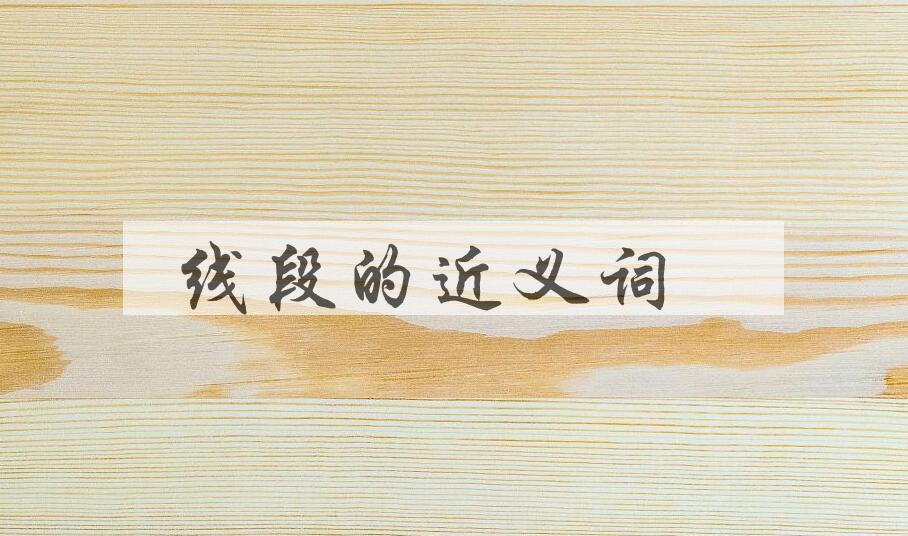 线段的近义词